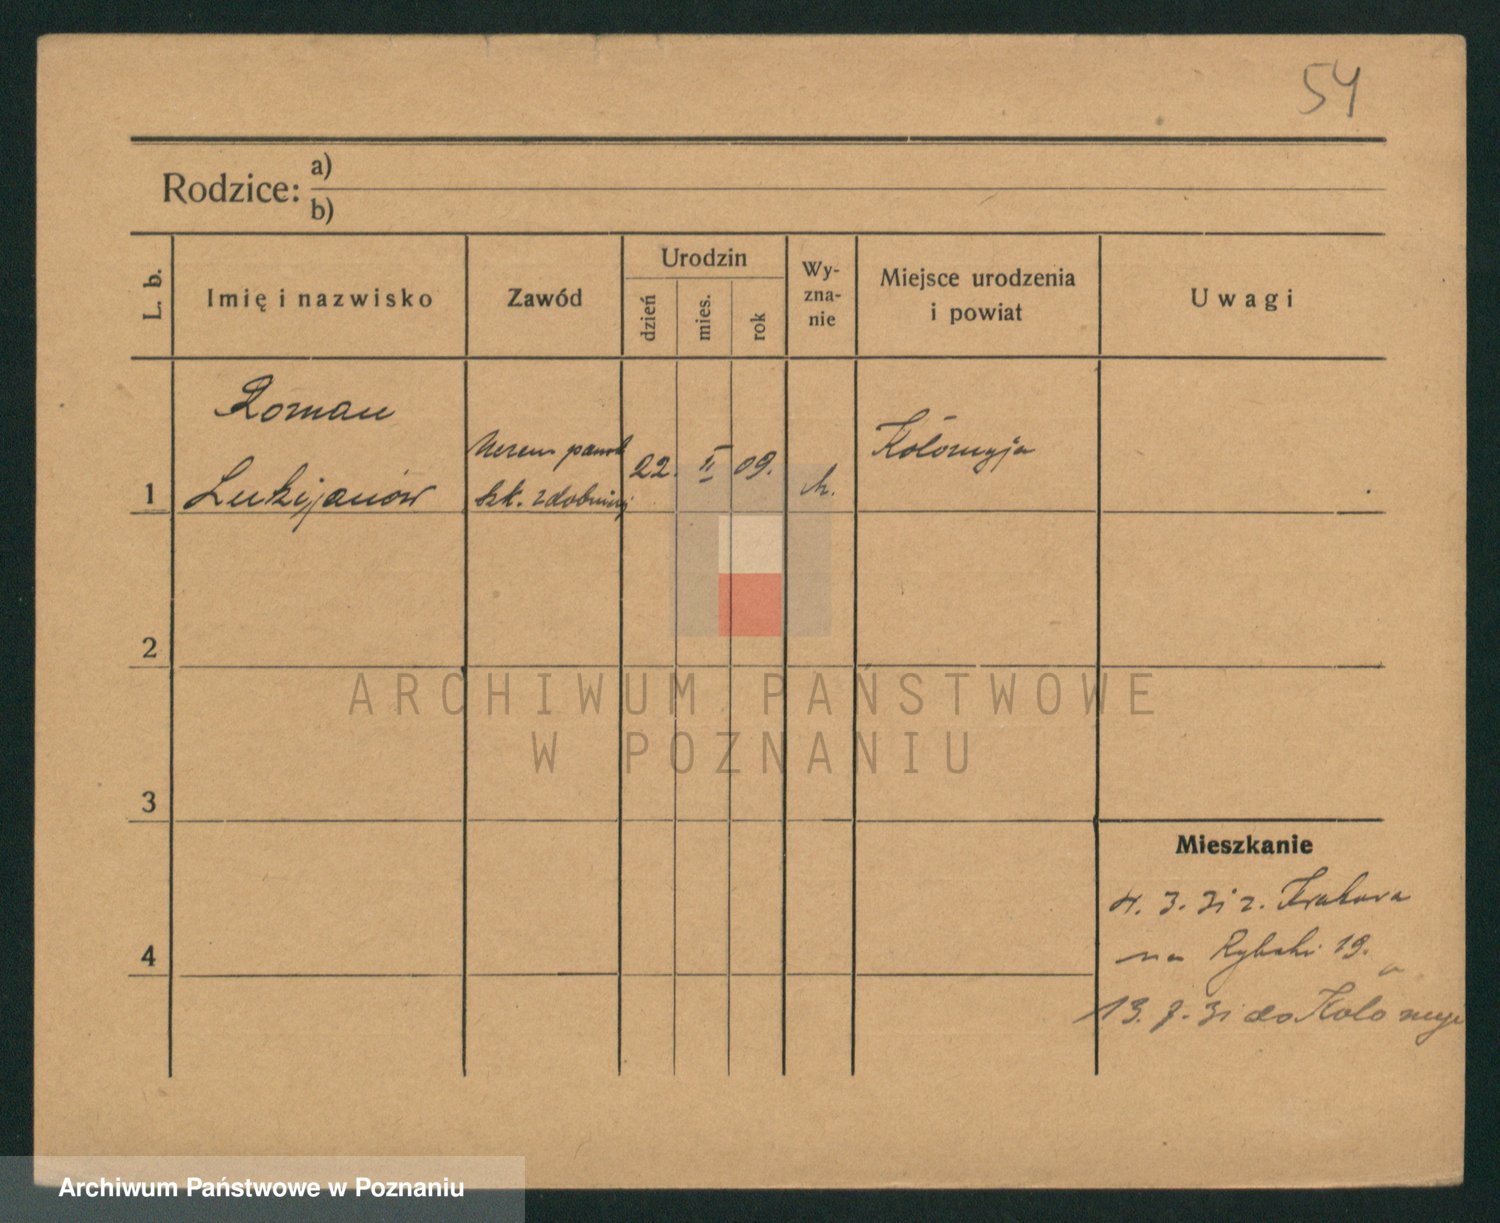 54
Rodzice: a)
b)
L. b.
Imię i nazwisko
Zawód
Urodzin
dzień
mies.
rok
Wy-
zna-
nie
Miejsce urodzenia
i powiat
Uwagi
Roman
Lukijanów
szk. zdobniczej
22. II 09.
Kołomyja
1
2
3
4
Mieszkanie
4. 3. 31 z. Krakowa
na Rybaki 19.
13. 7. 31 do Kołomyi
ARCHIWUM PAŃSTWOWE
W POZNANIU
Archiwum Państwowe w Poznaniu